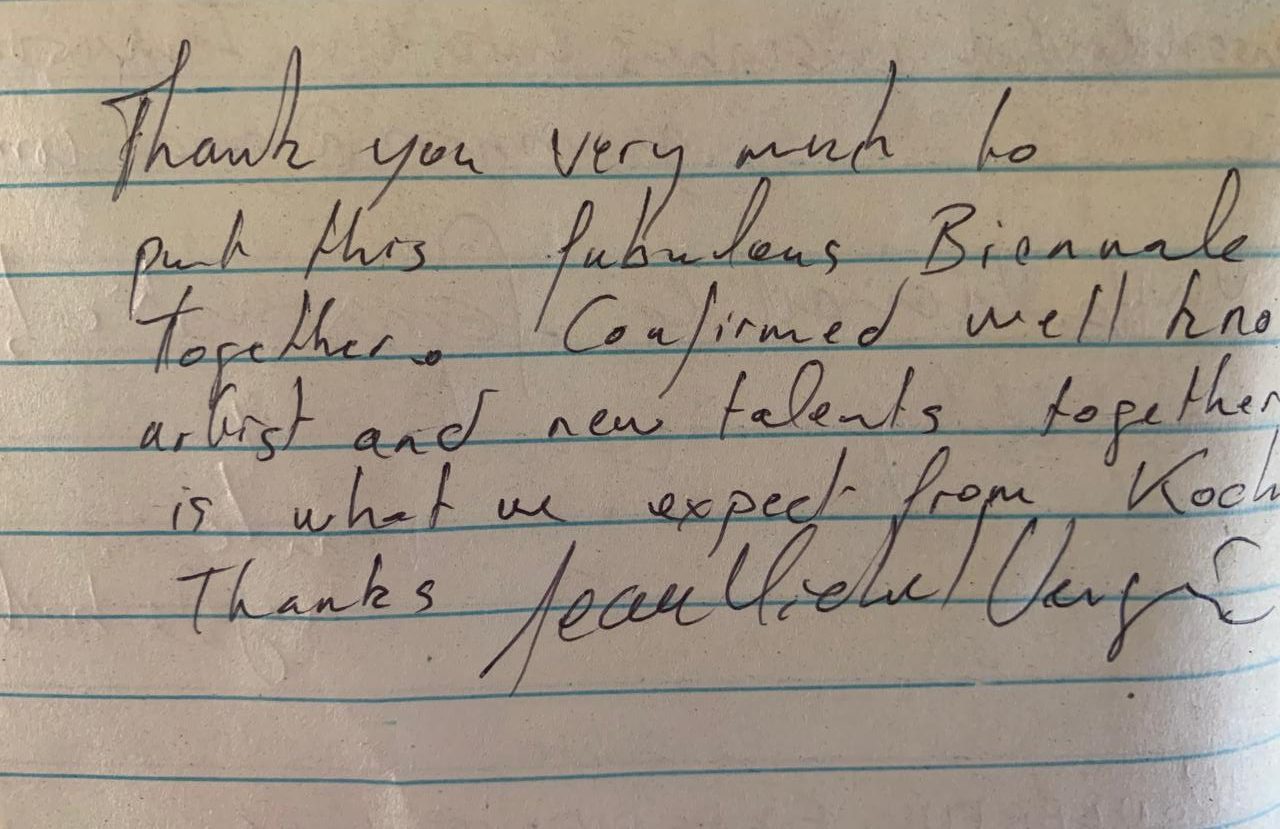 Thank you very much to
put this fabulous Biennale
together. Confirmed well kno
artist and new talents together
is what we expect from Koch
Thanks Jean Michel